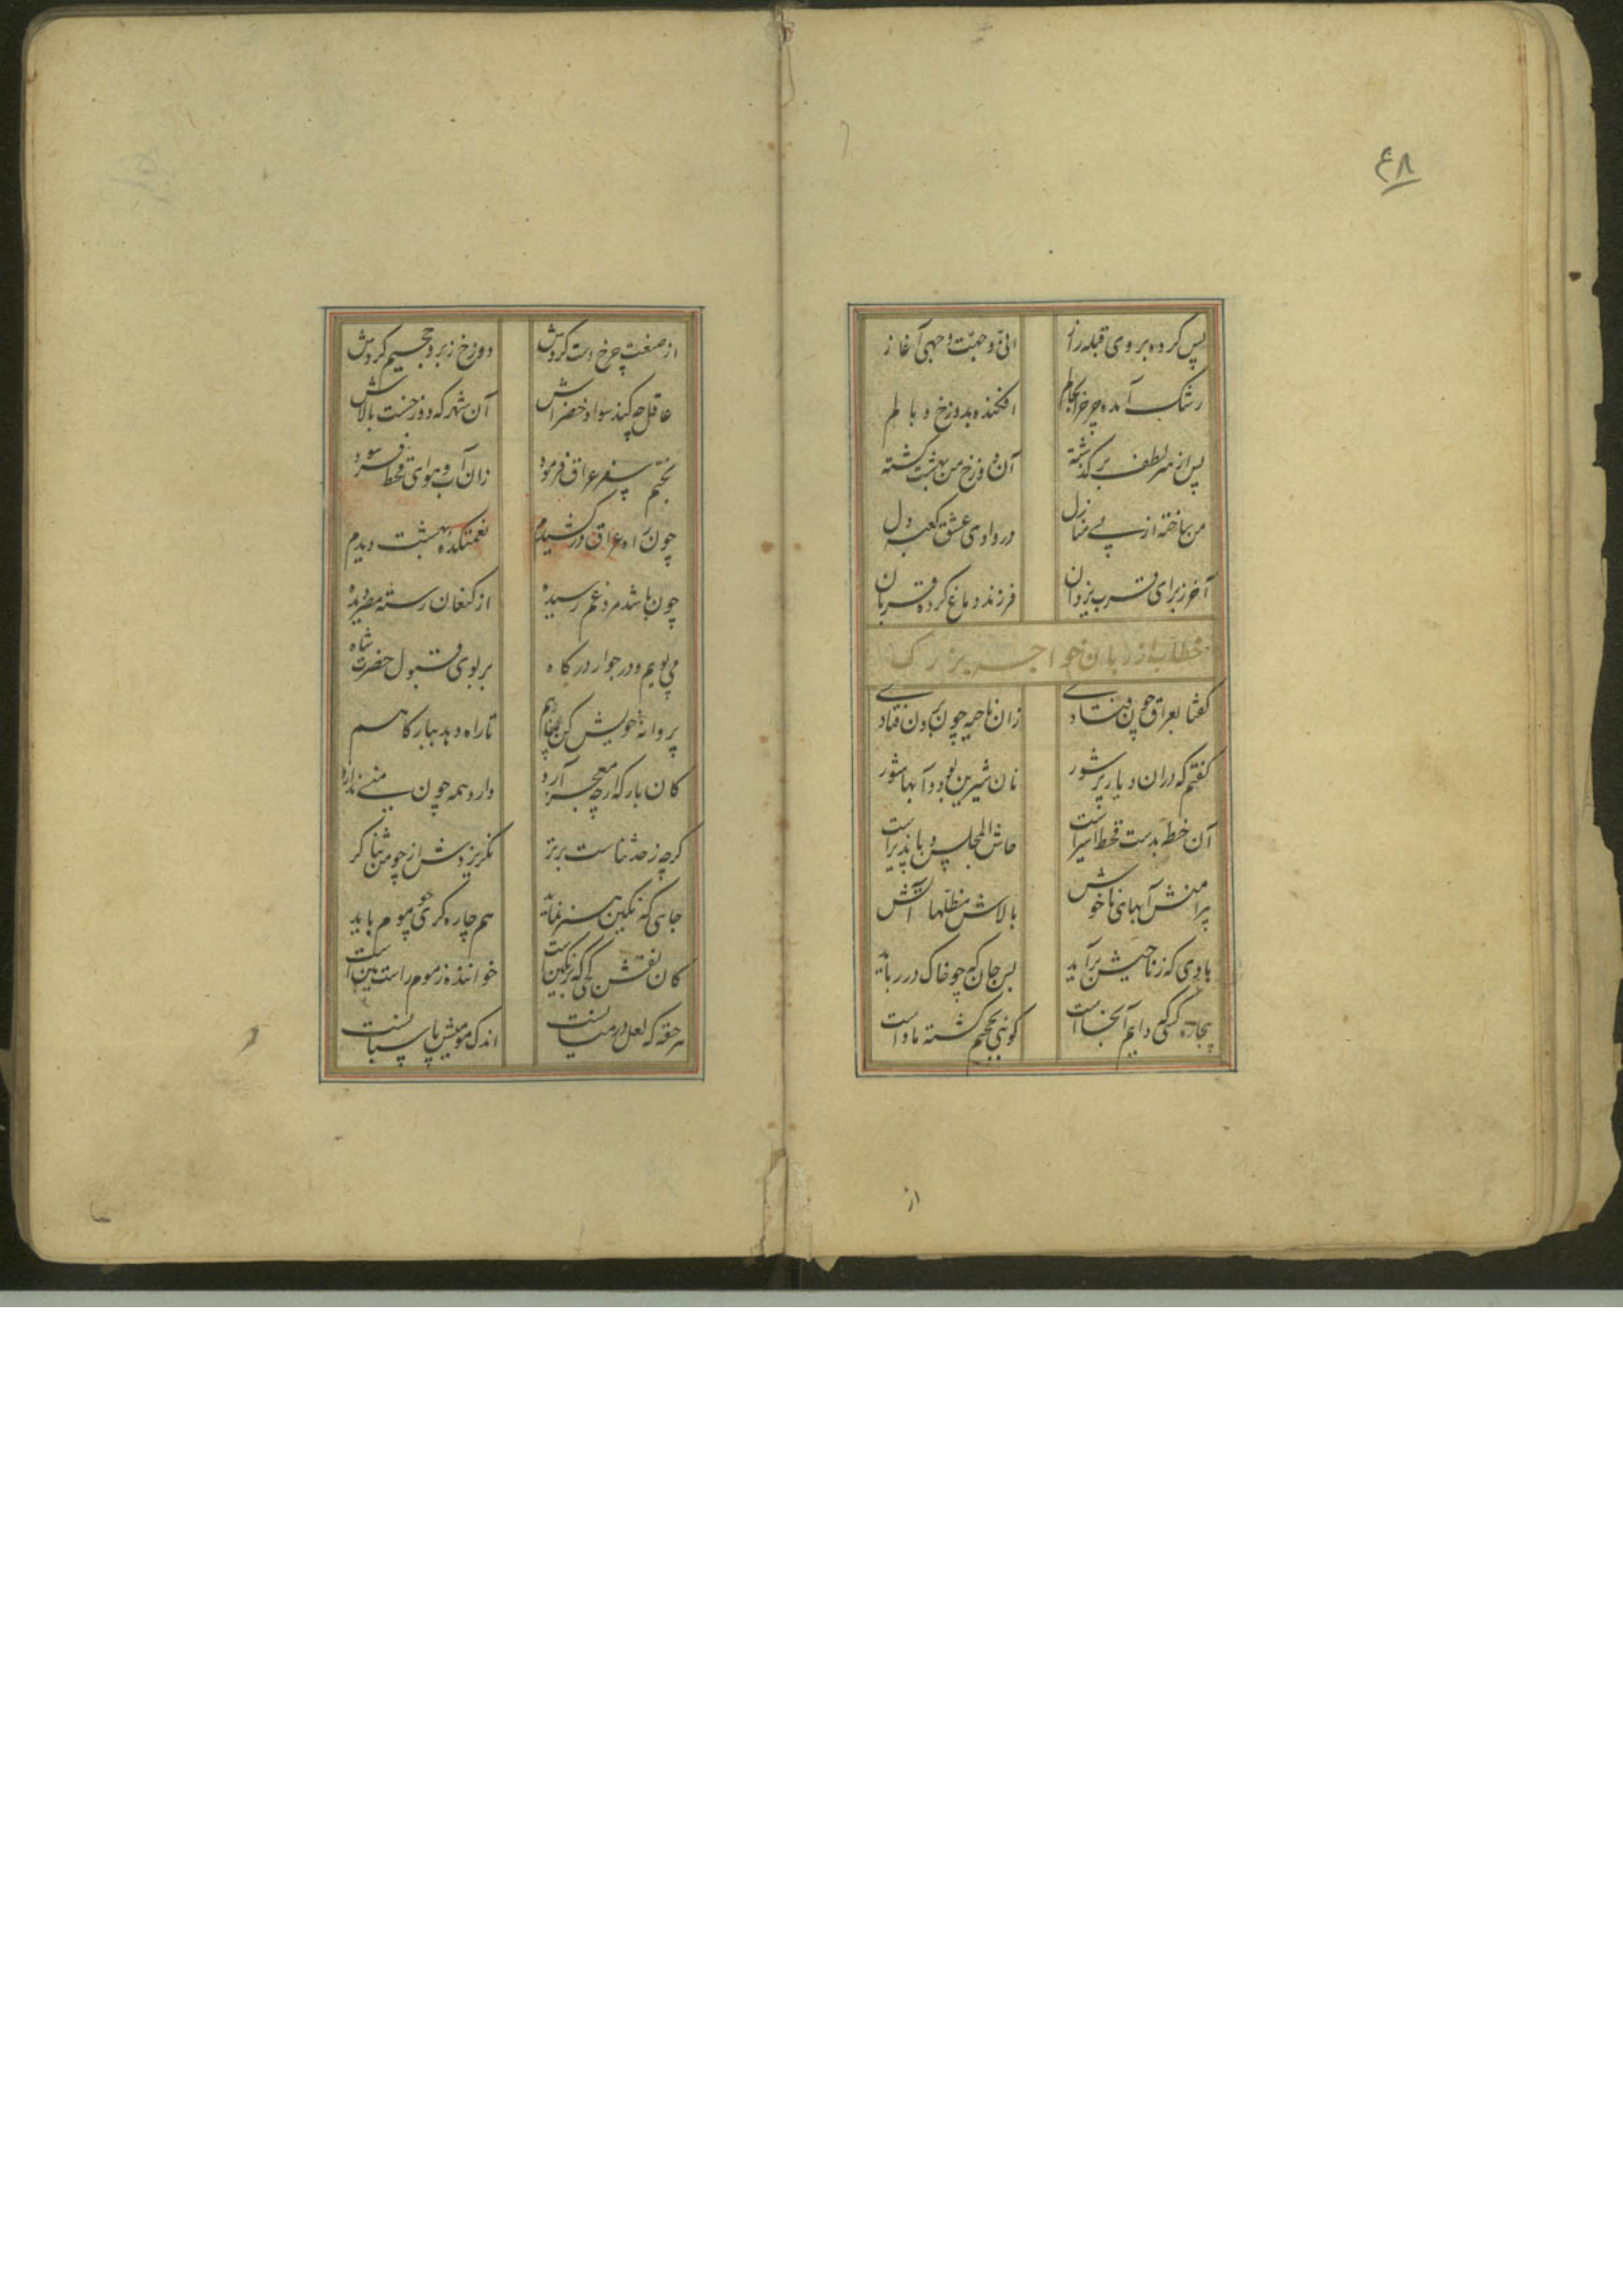 ۴۸
پس کرده بروی قبله راز
انی وجهت وجهی آغاز
رشک آمده چرخ
افکنده بدوزخ و با طم
پس از سر لطف برکذشته
آن دوزخ من بهشت کشته
من ساخته از پی منازل
در وادی عشق کعبه دل
آخر ز برای قرب یزدان
فرزند دماغ کرده قربان
خطاب از زبان خواجه بزرک
کفتا بعراق چون فتادی
زان ناحیه چون برون فتادی
کفتم که دران دیار پر شور
نان شیرین بود و آبها شور
آن خطه بدست قحط اسیر است
خاش المجلس وبا پذیر است
پیرامنش آبهای ناخوش
بالاش مظلها آتش
بادی که ز ناحیتش برآید
بس جان که چو خاک در رباید
بیچاره کسی که دایم آنجا است
کوئی بجحیم کشته ماوا است
از
از صنعت چرخ دست کردش
دوزخ زبر و جحیم کردش
عاقل چه کند سواد خضراش
آن شهر که دوزخست بالاش
بختم سفر عراق فرمود
زان آب و هوای قحط فرسود
چون راه عراق در کشیدم
نعمتکده بهشت دیدم
چون باشد مرد غم رسیده
از کنعان رسته مصر دیده
می پویم در جوار درکاه
بر بوی قبول حضرت شاه
پروانه خویش کن
تا راه دهد ببارکاهم
کان بارکه ارچه معجز آرد
دارد همه چون منی ندارد
کرچه ز حد ثناست برتر
نکریزدش از چو من ثنا کر
جایی که نکین هنر نماید
هم چاره کری چو موم باید
کان نقش کجی که بر نکین است
خواننده ز موم راست بین است
هر حقه که لعل در میانست
اندک مومیش پاسبانست